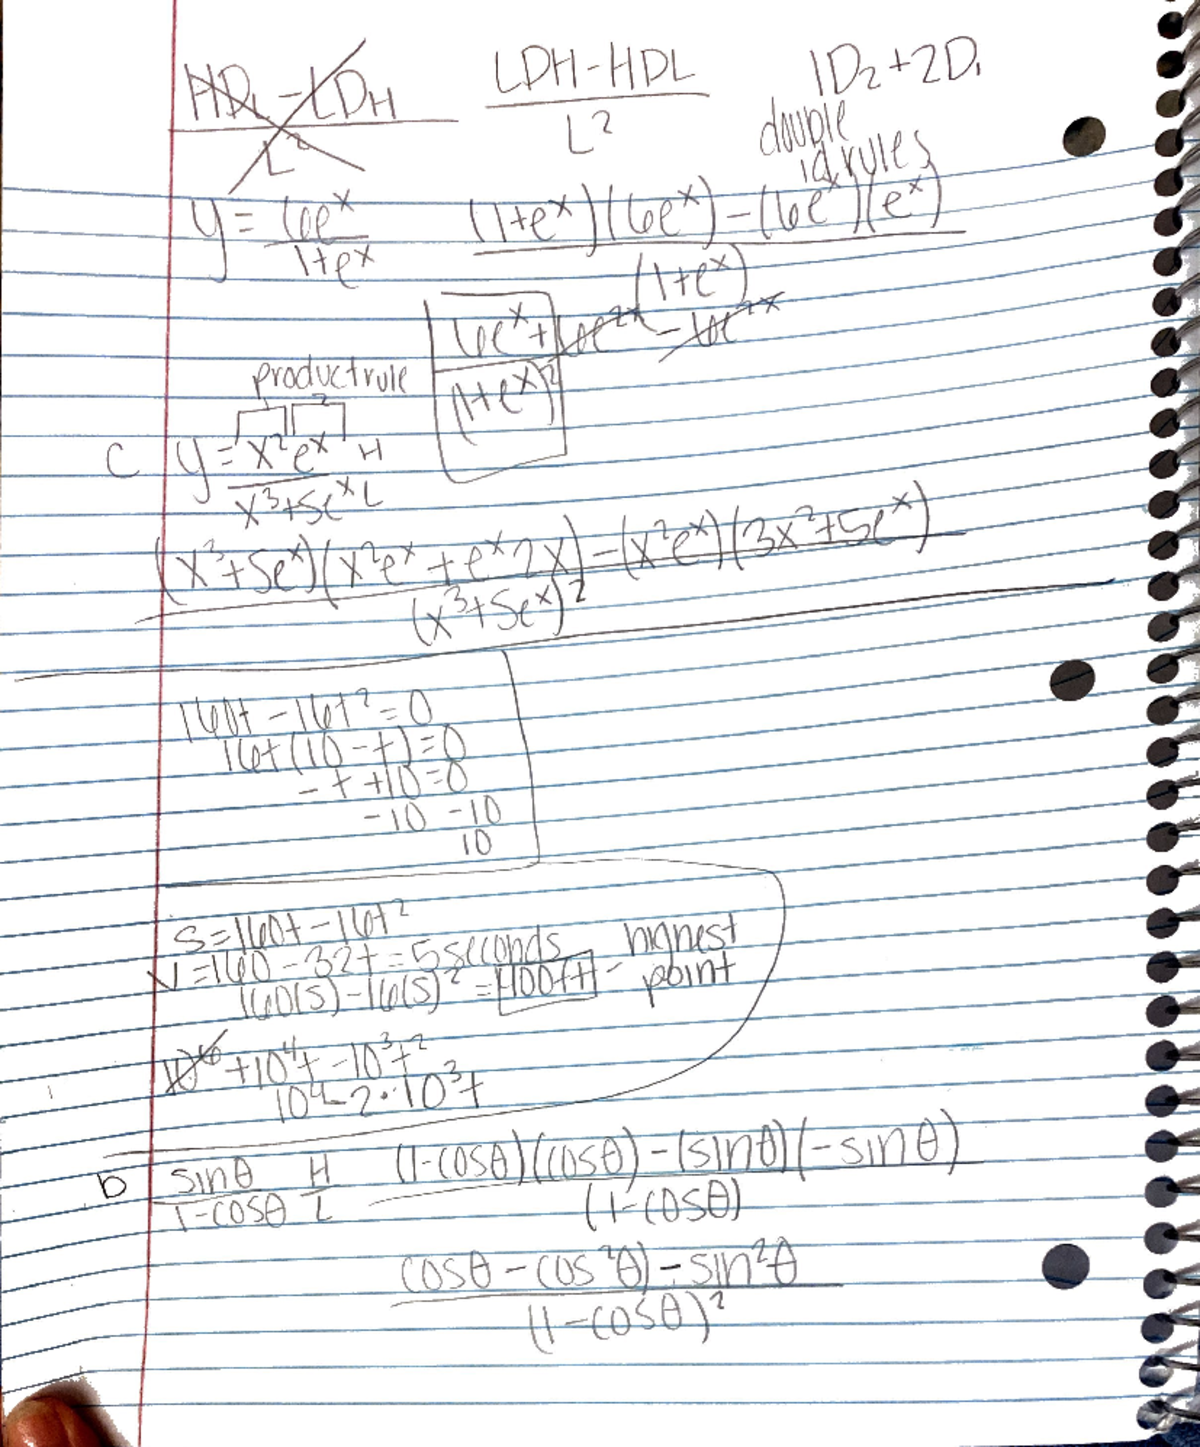 HDL - LDH / L²
LDH - HDL / L²
1D₂ + 2D₁
double
id rules
y = 6eˣ / 1+eˣ
(1+eˣ)(6eˣ) - (6eˣ)(eˣ) / (1+eˣ)
6eˣ + 6e²ˣ - 6e²ˣ / (1+eˣ)²
product rule
2
C y = x²eˣ H / x³+5eˣ L
(x³+5eˣ)(x²eˣ + eˣ2x) - (x²eˣ)(3x²+5eˣ) / (x³+5eˣ)²
160t - 16t² = 0
16t(10 - t) = 0
- t + 10 = 0
-10 -10
10
S = 160t - 16t²
V = 160 - 32t = 5 seconds
160(5) - 16(5)² = 400ft - highest point
+10⁴t - 10³t²
10⁴ - 2·10³t
b sinθ / 1-cosθ H / L
(1-cosθ)(cosθ) - (sinθ)(-sinθ) / (1-cosθ)
cosθ - cos²θ) - sin²θ / (1-cosθ)²